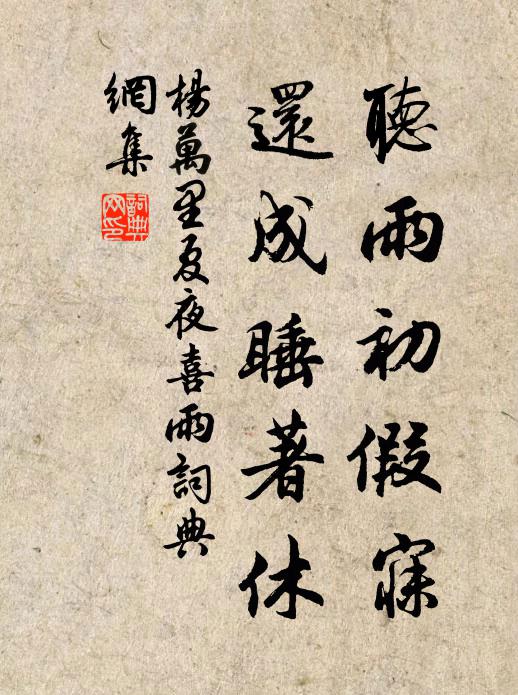 聽雨初假寐
還成睡著休
楊萬里夏夜喜雨詞典
網集
詞典網印